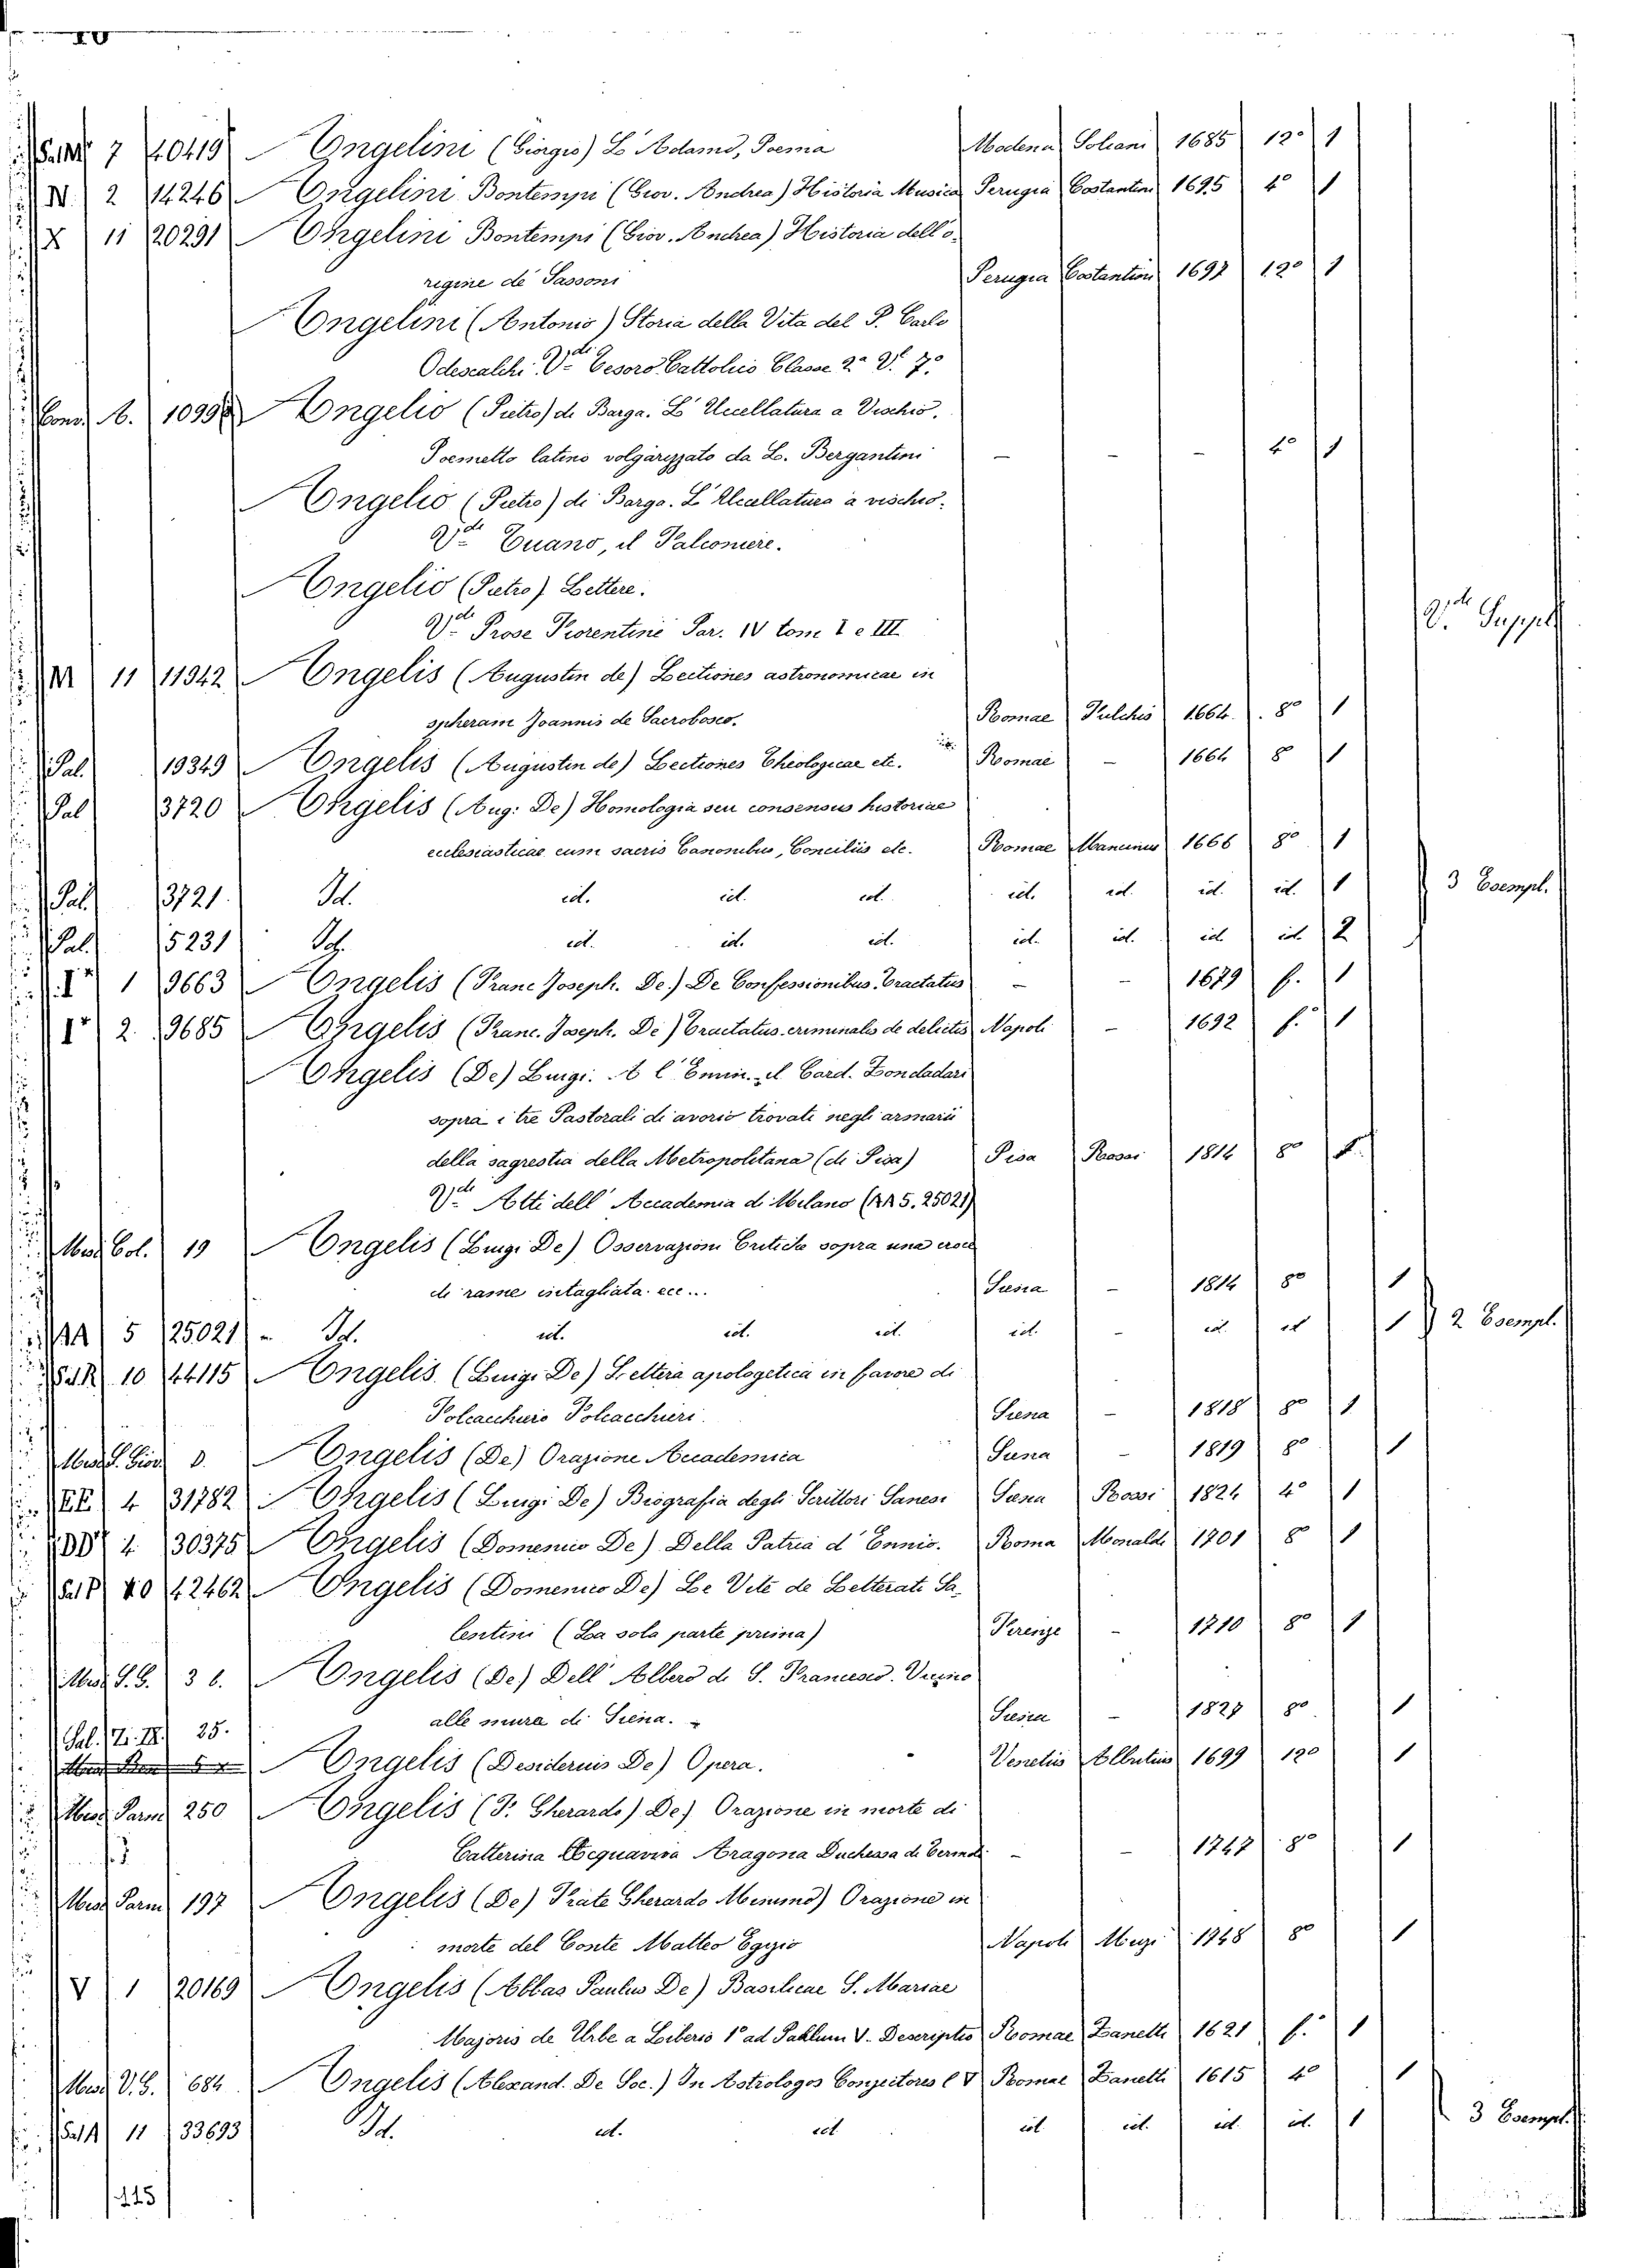 Sal.M 7 40419 Angelini (Giorgio) L'Adamo, Poema Modena Soliani 1685 12° 1
N. 2 14246 Angelini Bontempi (Giov. Andrea) Historia Musica Perugia Costantini 1695 4° 1
X 11 20291 Angelini Bontempi (Giov. Andrea) Historia dell'o-
regine de Sassoni Perugia Costantini 1697 12° 1
Angelini (Antonio) Storia della Vita del P. Carlo
Odescalchi. V.de Tesoro Cattolico Classe 2a V. 7°
A. Angelio (Pietro) di Barga. L'Uccellatura a Vischio.
Poemetto latino volgarizzato da L. Bergantini - - - 4° 1
Angelio (Pietro) di Barga. L'Uccellatura a vischio.
V.de Tuano, il Falconiere.
Angelio (Pietro) Lettere.
V.de Prose Fiorentine Par. IV tom. I e III V.de Suppl
M 11 11942 Angelis (Augustin de) Lectiones astronomicae in
spheram Joannis de Sacrobosco. Romae Fulchis 1664. 8° 1
Pal. 19349 Angelis (Augustin de) Lectiones Theologicae etc. Romae - 1664 8° 1
Pal 3720 Angelis (Aug: De) Homologia seu consensus historiae
ecclesiasticae cum sacris Canonibus, Conciliis etc. Romae Mancinus 1666 8° 1
Pal. 3721. Id. id. id. id. id. id. id. id. 1 3 Esempl.
Pal. 5231 Id. id. id. id. id. id. id. id. 2
I 1 9663 Angelis (Franc Joseph. De.) De Confessionibus. Tractatus - - 1679 f. 1
I 2. 9685 Angelis (Franc. Joseph. De) Tractatus criminales de delictis Napoli - 1692 f.° 1
Angelis (De) Luigi. A l'Emin. il Card. Zondadari
sopra i tre Pastorali di avorio trovati negli armarii
della sagrestia della Metropolitana (di Pisa) Pisa Rossi 1814 8° 1.
V.de Atti dell'Accademia di Milano (AA 5. 25021)
Misc. Col. 19 Angelis (Luigi De) Osservazioni Critiche sopra una croce
di rame intagliata. ecc... Siena - 1814 8° 1
AA 5 25021 - Id. id. id. id. id. - id. id 1 2 Esempl.
Sal.R 10 44115 Angelis. (Luigi De) Lettera apologetica in favore di
Folcacchiero Folcacchieri. Siena - 1818 8° 1
Misc. S. Giov. D. Angelis (De) Orazione Accademica Siena - 1819 8° 1
EE 4 31782 Angelis (Luigi De) Biografia degli Scrittori Sanesi Siena Rossi 1824 4° 1
DD 4 30375 Angelis (Domenico De) Della Patria d'Ennio. Roma Monaldi 1701 8° 1
Sal P 10 42462 Angelis (Domenico De) Le Vite de Letterati Sa-
lentini (La sola parte prima) Firenze - 1710 8° 1
Misc. S.G. 36. Angelis (De) Dell'Albero di S. Francesco. Vicino
alle mura di Siena. - Siena - 1827 8°. 1
Sal. Z. 25.
Angelis (Desiderius De) Opera. - Venetiis Albritius 1699 12° 1
Misc. Parm 250 Angelis (F. Gherardo) De) Orazione in morte di
Catterina Acquaviva Aragona Duchessa di Termoli - - 1747 8° 1
Misc. Parm 197 Angelis (De) Frate Gherardo Minimo) Orazione in
morte del Conte Matteo Egizio Napoli Muzi 1748 8° 1
V 1 20169 Angelis (Abbas Paulus De) Basilicae S. Mariae
Majoris de Urbe a Liberio 1° ad Paulum V. Descriptio Romae Zanetti 1621 f.° 1
Misc. V.G. 684 Angelis (Alexand. De Soc.) In Astrologos Conjectores l V Romae Zanetti 1615 4° 1
Sal A 11 33693 Id. id. id id id. id. id. 1 3 Esempl.